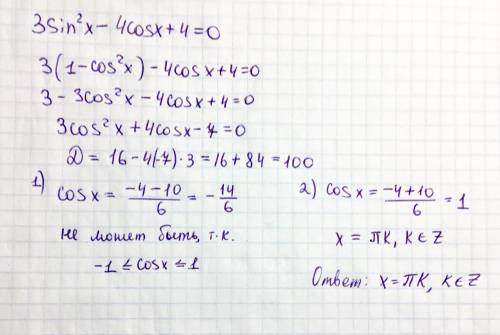 3sin²x - 4cosx + 4 = 0
3(1-cos²x) - 4cosx + 4 = 0
3 - 3cos²x - 4cosx + 4 = 0
3cos²x + 4cosx - 7 = 0
D = 16 - 4(-7)·3 = 16 + 84 = 100
1) cosx = (-4-10)/6 = -14/6
не может быть, т.к.
-1 ≤ cosx ≤ 1
2) cosx = (-4+10)/6 = 1
x = πk, k ∈ Z
Ответ: x = πk, k ∈ Z